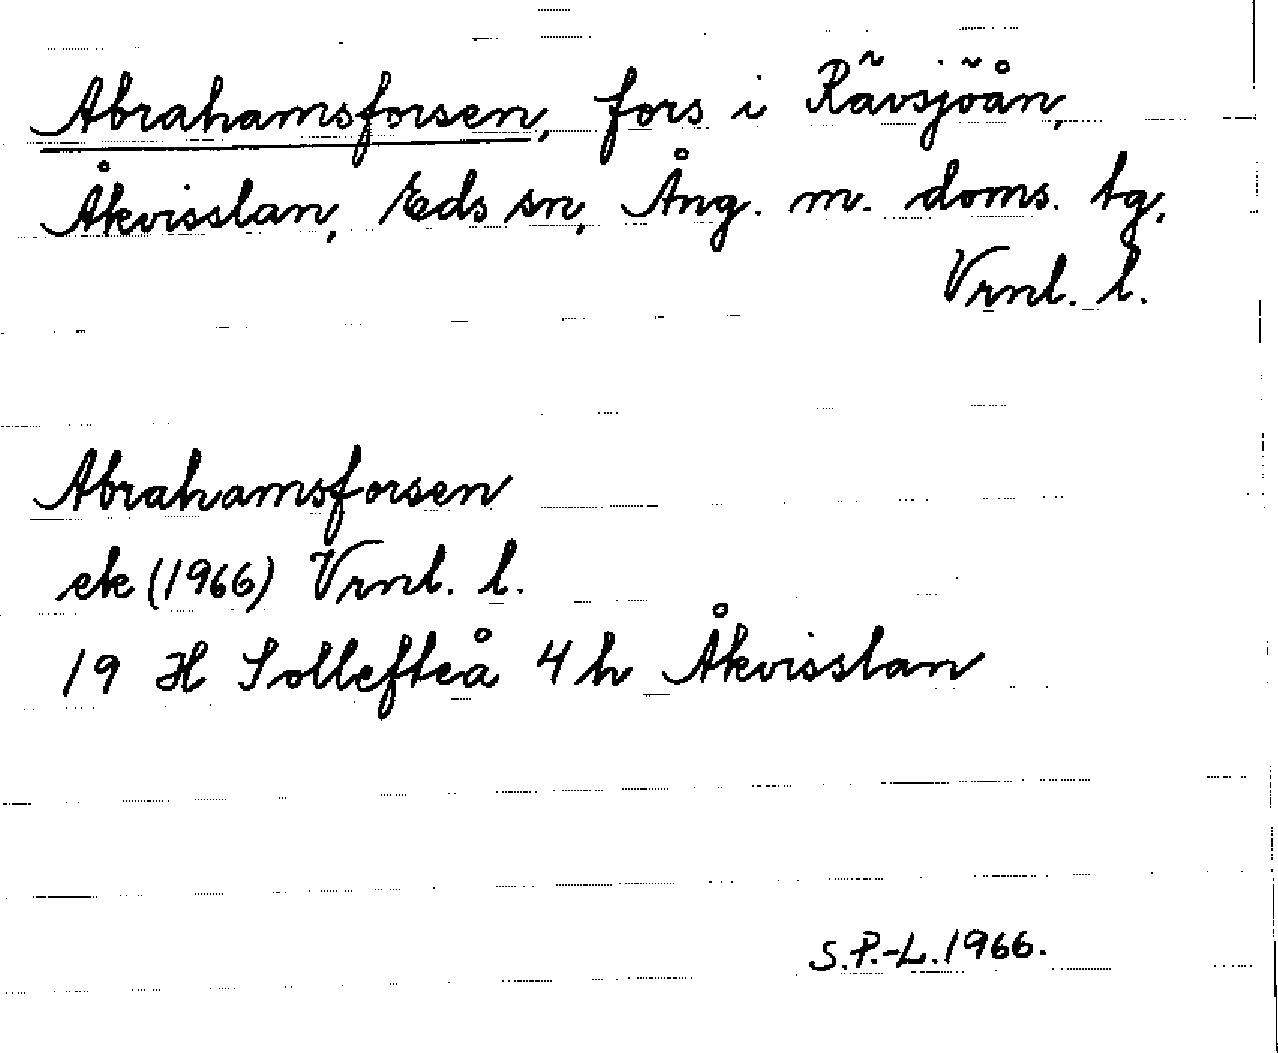 Abrahamsforsen, fors i Rävsjöån,
Åkvisslan, Eds sn, Ång. m. doms. tg,
Vrnl. l.
Abrahamsforsen
ek (1966) Vrnl. l.
19 H Sollefteå 4 h Åkvisslan
S.P.-L. 1966.